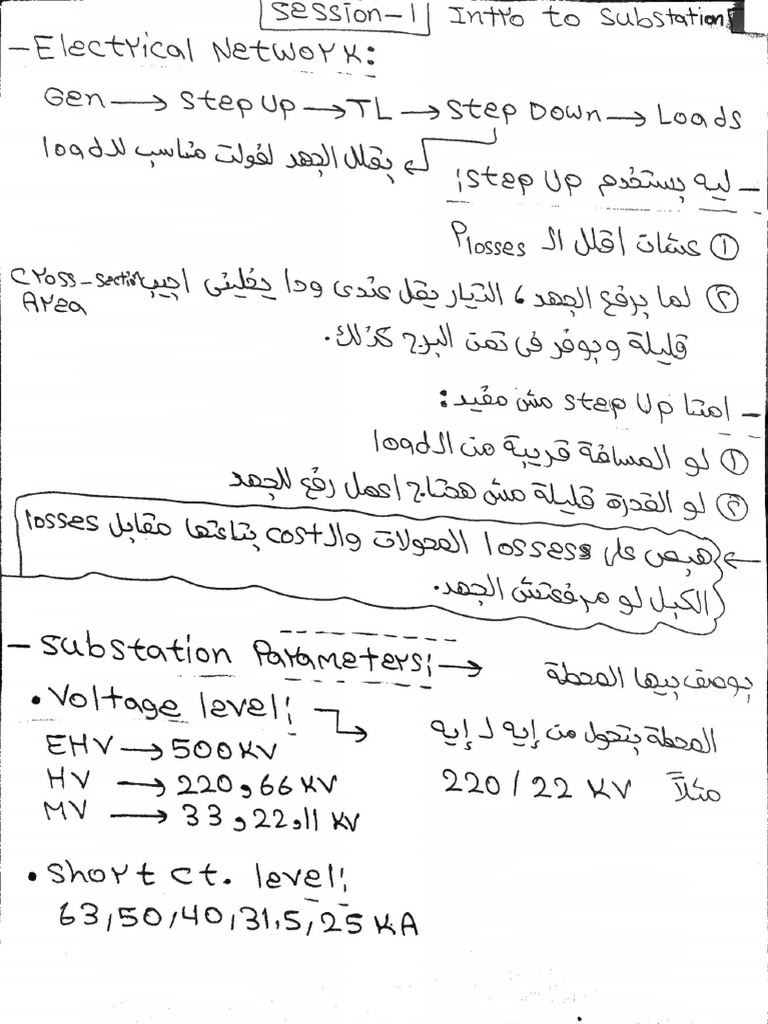 Session-1 Intro to Substation
- Electrical Network:
Gen → Step Up → TL → Step Down → Loads
بقلل الجهد لفولت مناسب للـ load
- ليه بستخدم Step Up:
① عشان اقلل الـ Plosses
② لما برفع الجهد، التيار يقل عندى ودا يخلينى اجيب Cross-section
Area
قليلة وبوفر فى تمن البرج كذلك.
- امتا Step Up مش مفيد:
① لو المسافة قريبة من الـ load
② لو القدرة قليلة مش هحتاج اعمل رفع للجهد
← هبص على losses المحولات والـ cost بتاعتها مقابل losses
الكبل لو مرفعتش الجهد.
- Substation Parameters: → بوصف بيها المحطة
• Voltage level: المحطة بتحول من إيه لـ إيه
EHV → 500 KV
HV → 220 و 66 KV مثلاً 220/22 KV
MV → 33 و 22 و 11 KV
• Short ct. level:
63, 50, 40, 31.5, 25 KA